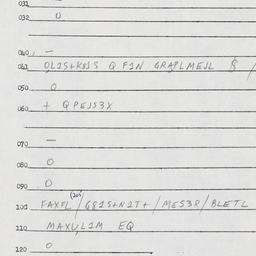 031
032 0
040 —
041 QL1S+K81S Q F1N GRAPLMEJL §
050 0
060 + Q PEJS3X
070 —
080 0
090 0
(205)
101 FAXFL / G81S+N1T+ / MES3R / BLETL
110 MAXULIM EQ
120 0